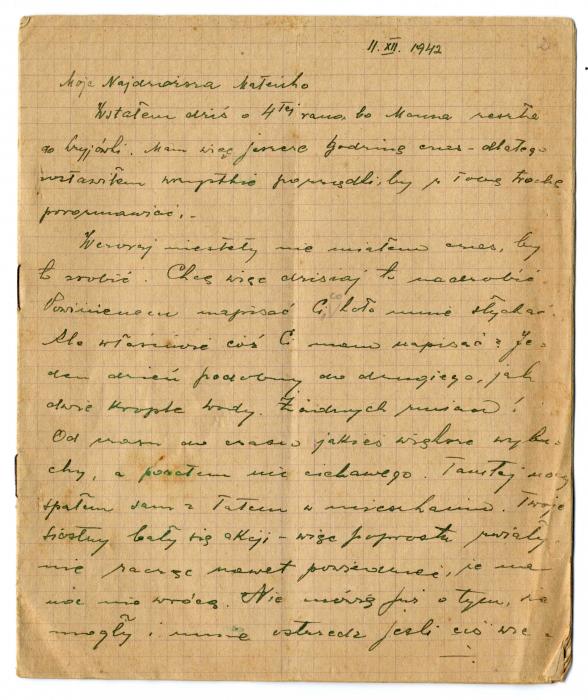 11. XII. 1942
2
Moja Najdroższa Mateńko
Wstałem dziś o 4tej rano, bo Mama zeszła
do kryjówki. Mam więc jeszcze godzinę czas - dlatego
zostawiłem wszystkie porządki, by z Tobą trochę
porozmawiać. -
Wczoraj niestety nie miałem czas, by
to zrobić. Chcę więc dzisiaj to nadrobić.
Powinienem napisać Ci, co koło mnie słychać.
Ale właściwie cóż Ci mam napisać? Je-
den dzień podobny do drugiego, jak
dwie krople wody. Żadnych zmian!
Od czasu do czasu jakieś większe wybu-
chy, a pozatem nic ciekawego. Tamtej nocy
spałem sam z Tatem w mieszkaniu. Twoje
siostry bały się akcji - więc poprostu zwiały,
nie racząc nawet powiedzieć, że na
noc nie wrócą. Nie mówię już o tym, że
mogły i mnie ostrzedz jeśli coś wie-